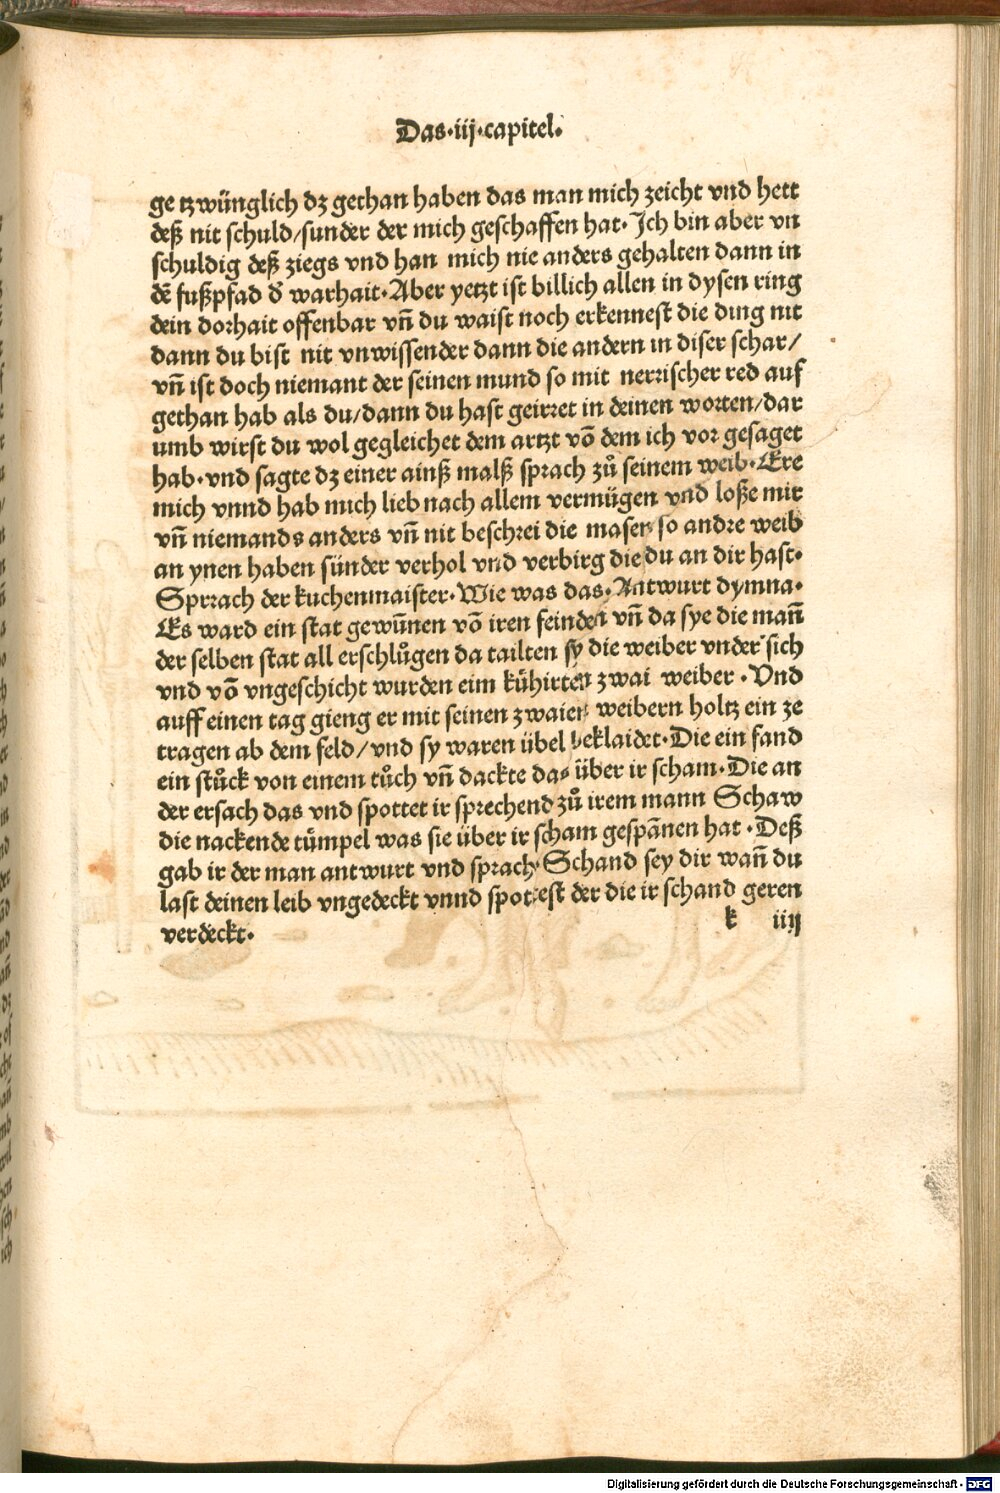 Das·iij·capitel·
ge tzwünglich dz gethan haben das man mich zeicht vnd hett
deß nit schuld/sunder der mich geschaffen hat· Ich bin aber vn
schuldig deß ziegs vnd han mich nie anders gehalten dann in
dē fußpfad d̄ warhait·Aber yetzt ist billich allen in dysen ring
dein dorhait offenbar vn̄ du waist noch erkennest die ding nit
dann du bist nit vnwissender dann die andern in diser schar/
vn̄ ist doch niemant der seinen mund so mit nerrischer red auf
gethan hab als du/dann du hast geirret in deinen worten/dar
umb wirst du wol gegleichet dem artzt vō dem ich vor gesaget
hab·vnd sagte dz einer ainß malß sprach zů seinem weib·Ere
mich vnnd hab mich lieb nach allem vermügen vnd loße mir
vn̄ niemands anders vn̄ nit beschrei die masen so andre weib
an ynen haben sünder verhol vnd verbirg die du an dir hast·
Sprrach der kuchenmaister·Wie was das·Antwurt dymna·
Es ward ein stat gewūnen vō iren feinden vn̄ da sye die man̄
der selben stat all erschlůgen da tailten sy die weiber vnder sich
vnd vō vngeschicht wurden eim kühirten zwai weiber·Vnd
auff einen tag gieng er mit seinen zwaien weibern holtz ein ze
tragen ab dem feld/vnd sy waren übel beklaidet·Die ein fand
ein stůck von einem tůch vn̄ dackte das über ir scham·Die an
der ersach das vnd spottet ir sprechend zů irem mann Schaw
die nackende tümpel was sie über ir scham gespānen hat·Deß
gab ir der man antwurt vnd sprach·Schand sey dir wan̄ du
last deinen leib vngedeckt vnnd spottest der die ir schand geren
verdeckt·
k iiij
Digitalisierung gefördert durch die Deutsche Forschungsgemeinschaft - DFG